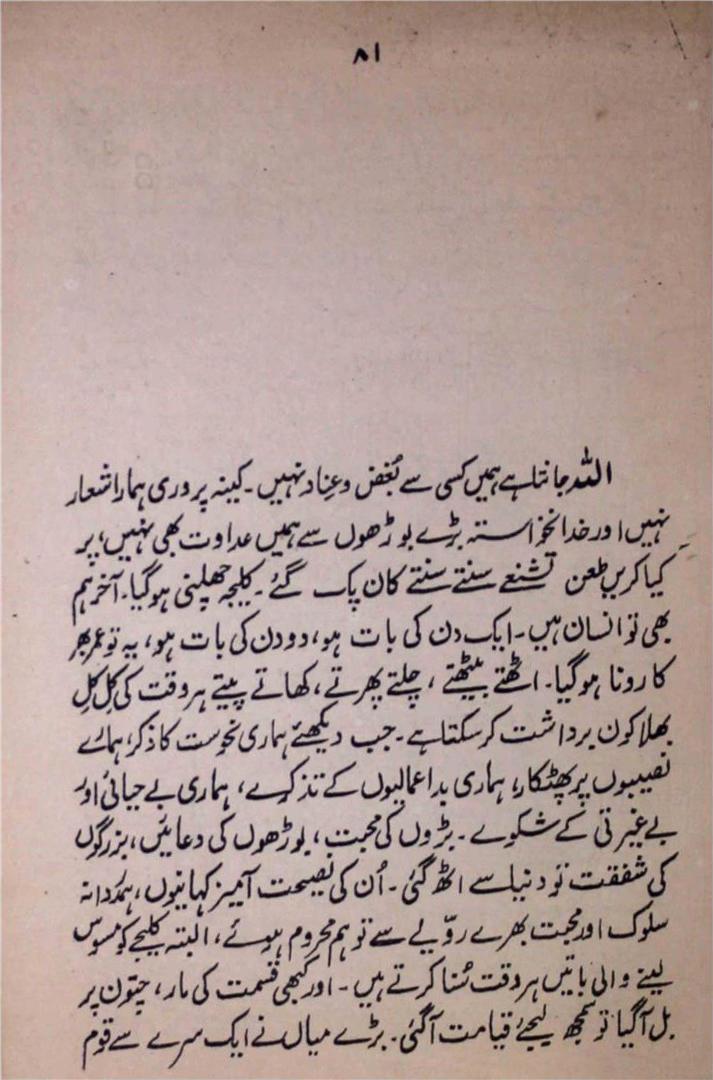 ۸۱
اللہ جانتا ہے ہمیں کسی سے بُغض و عِناد نہیں۔ کینہ پروری ہمارا شعار
نہیں اور خدانخواستہ بڑے بوڑھوں سے ہمیں عداوت بھی نہیں، پر
کیا کریں طعن تشنعے سنتے سنتے کان پک گئے۔ کلیجہ چھلنی ہوگیا۔ آخر ہم
بھی تو انسان ہیں۔ ایک دن کی بات ہو، دو دن کی بات ہو، یہ تو عمر بھر
کا رونا ہوگیا۔ اٹھتے بیٹھتے، چلتے پھرتے، کھاتے پیتے ہر وقت کی کِل کِل
بھلا کون برداشت کرسکتا ہے۔ جب دیکھئے ہماری نحوست کا ذکر، ہمارے
نصیبوں پر پھٹکار، ہماری بداعمالیوں کے تذکرے، ہماری بے حیائی اور
بے غیرتی کے شکوے۔ بڑوں کی محبت، بوڑھوں کی دعائیں، بزرگوں
کی شفقت تو دنیا سے اٹھ گئی۔ اُن کی نصیحت آمیز کہانیوں، ہمدردانہ
سلوک اور محبت بھرے روّیے سے تو ہم محروم ہوئے، البتہ کلیجے کو مسوس
لینے والی باتیں ہر وقت سُنا کرتے ہیں۔ اور کبھی قسمت کی مار، چتون پر
بل آگیا تو سمجھ لیجئے قیامت آگئی۔ بڑے میاں نے ایک سرے سے قوم